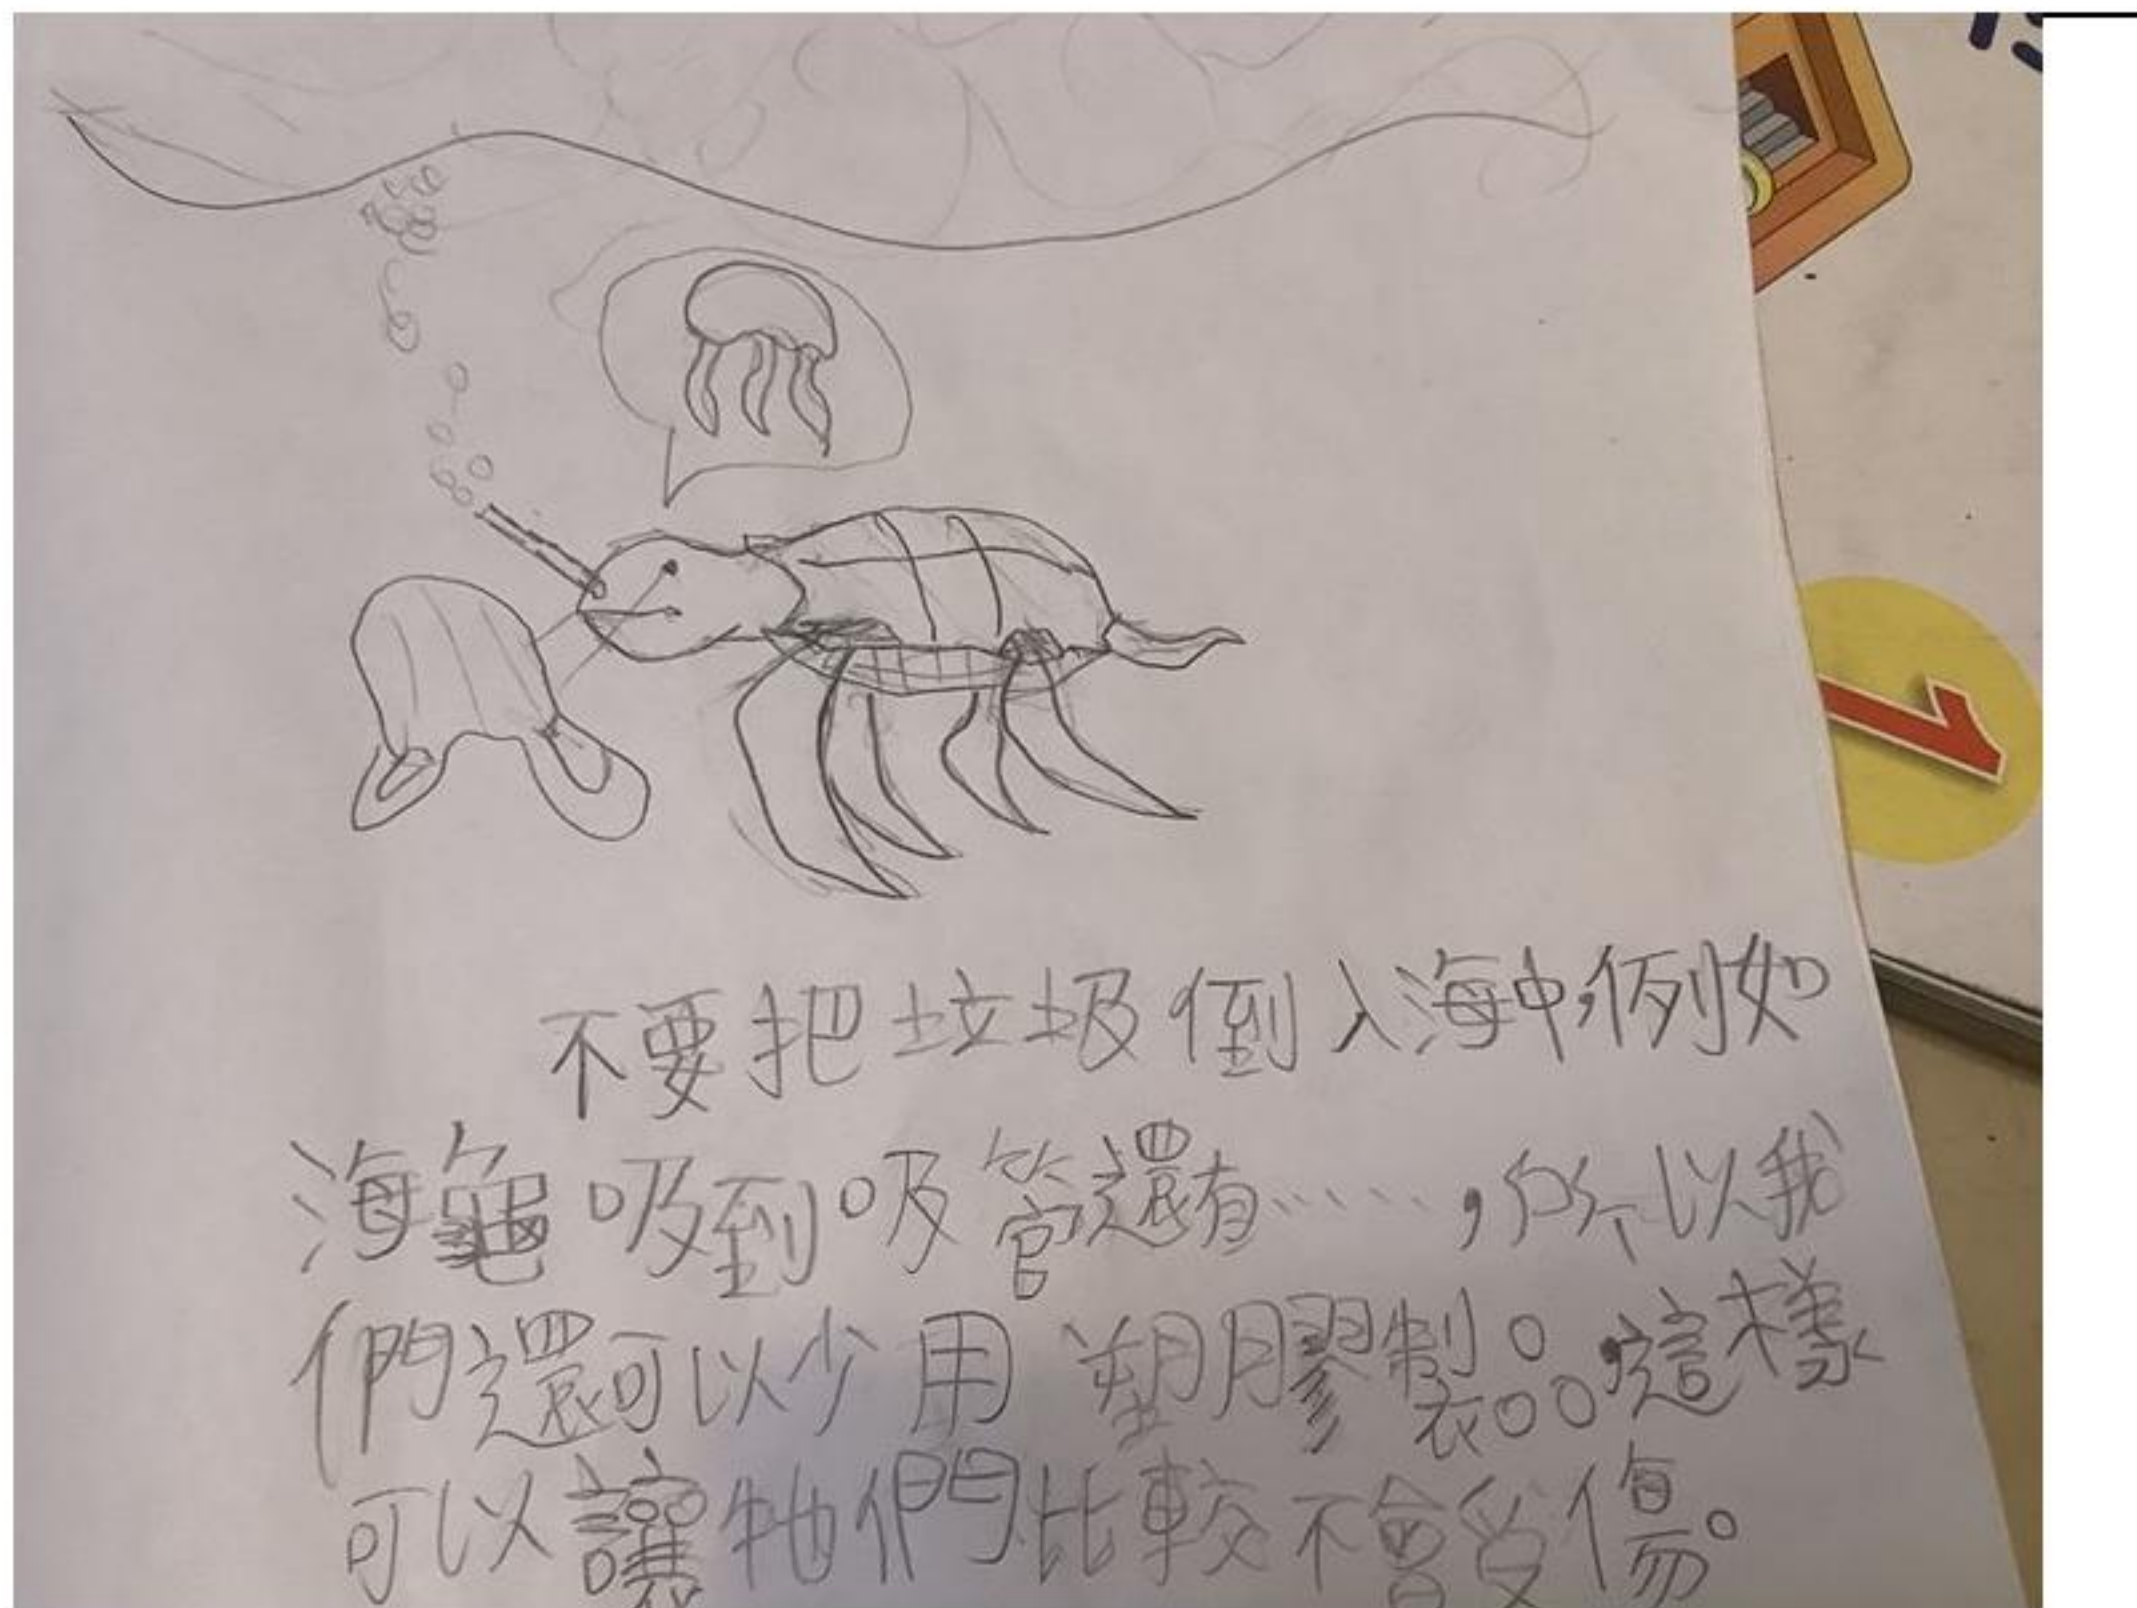 不要把垃圾倒入海中,例如
海龜吸到吸管還有……,所以我
們還可以少用塑膠製品。這樣
可以讓牠們比較不會受傷。
1